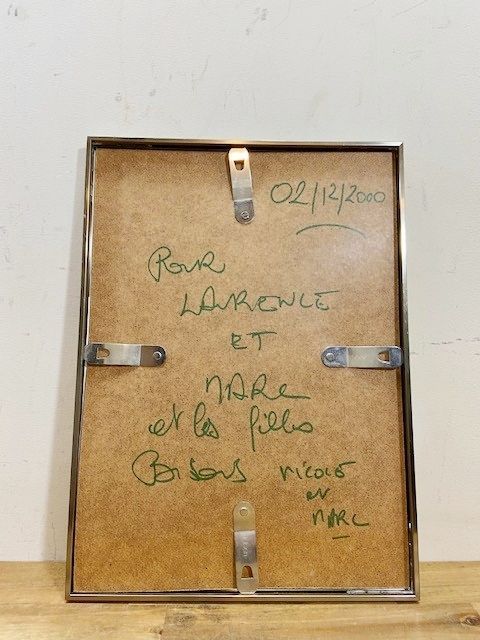 02/12/2000
Pour
LAURENCE
ET
MARC
et les filles
Bisous NICOLE
et
MARC